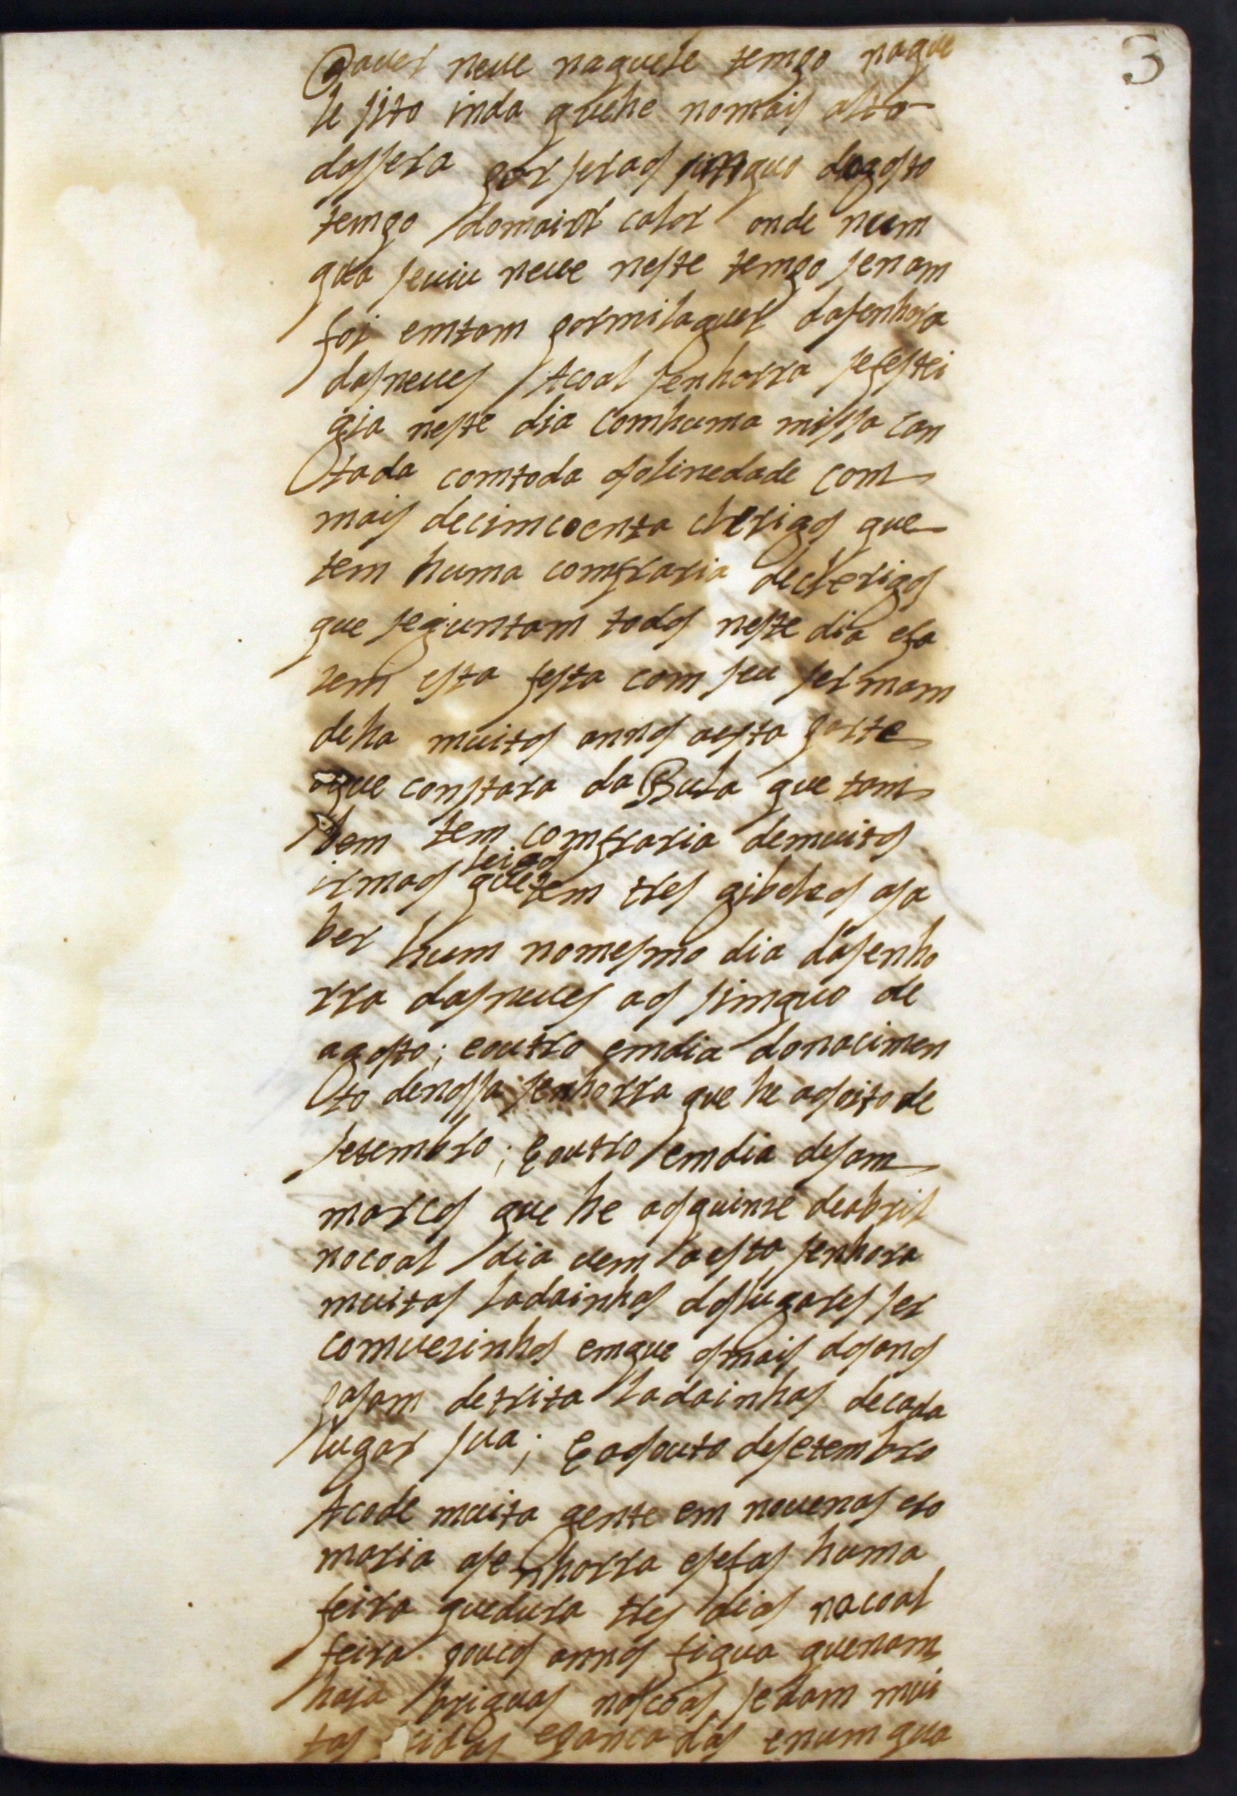 3
aver neve naquele tempo naque
le sito inda quehe nomais alto
dasera por seraos sinquo dagosto
tempo domaior calor onde num
qua seviu neve neste tempo senam
foi emtam pormilaguer dasenhora
dasneves Acoal senhorra sefestei
gia neste dia comhuma missa can
tada comtoda asolinedade com
mais decimcoenta clerigos que
tem huma comfraria declerigos
que sejuntam todos neste dia efa
zem esta festa com seu sermam
deha muitos annos aesta parte
oque constara da Bula que tam
bem tem comfraria demuitos
irmaos leigos quetem tres gibeleos asa
ber hum nomesmo dia dasenho
rra dasneves aos simquo de
agosto; eoutro emdia donacimen
to denossa senhorra que he aosoito de
setembro; Eoutro emdia desam
marcos que he aosquinze deabril
nocoal dia vem aesta senhora
muitas Ladainhas doslugares ser
comvezinhos emque osmais dosanos
pasam detrita Ladainhas decada
lugar sua; Eaosouto desetembro
Acode muita gente em novenas ero
maria ase nhorra esefas huma
feira quedura tres dias nacoal
feira poucos annos fiqua quenam
haja briguas nascoas sedam mui
tas epancadas enumqua